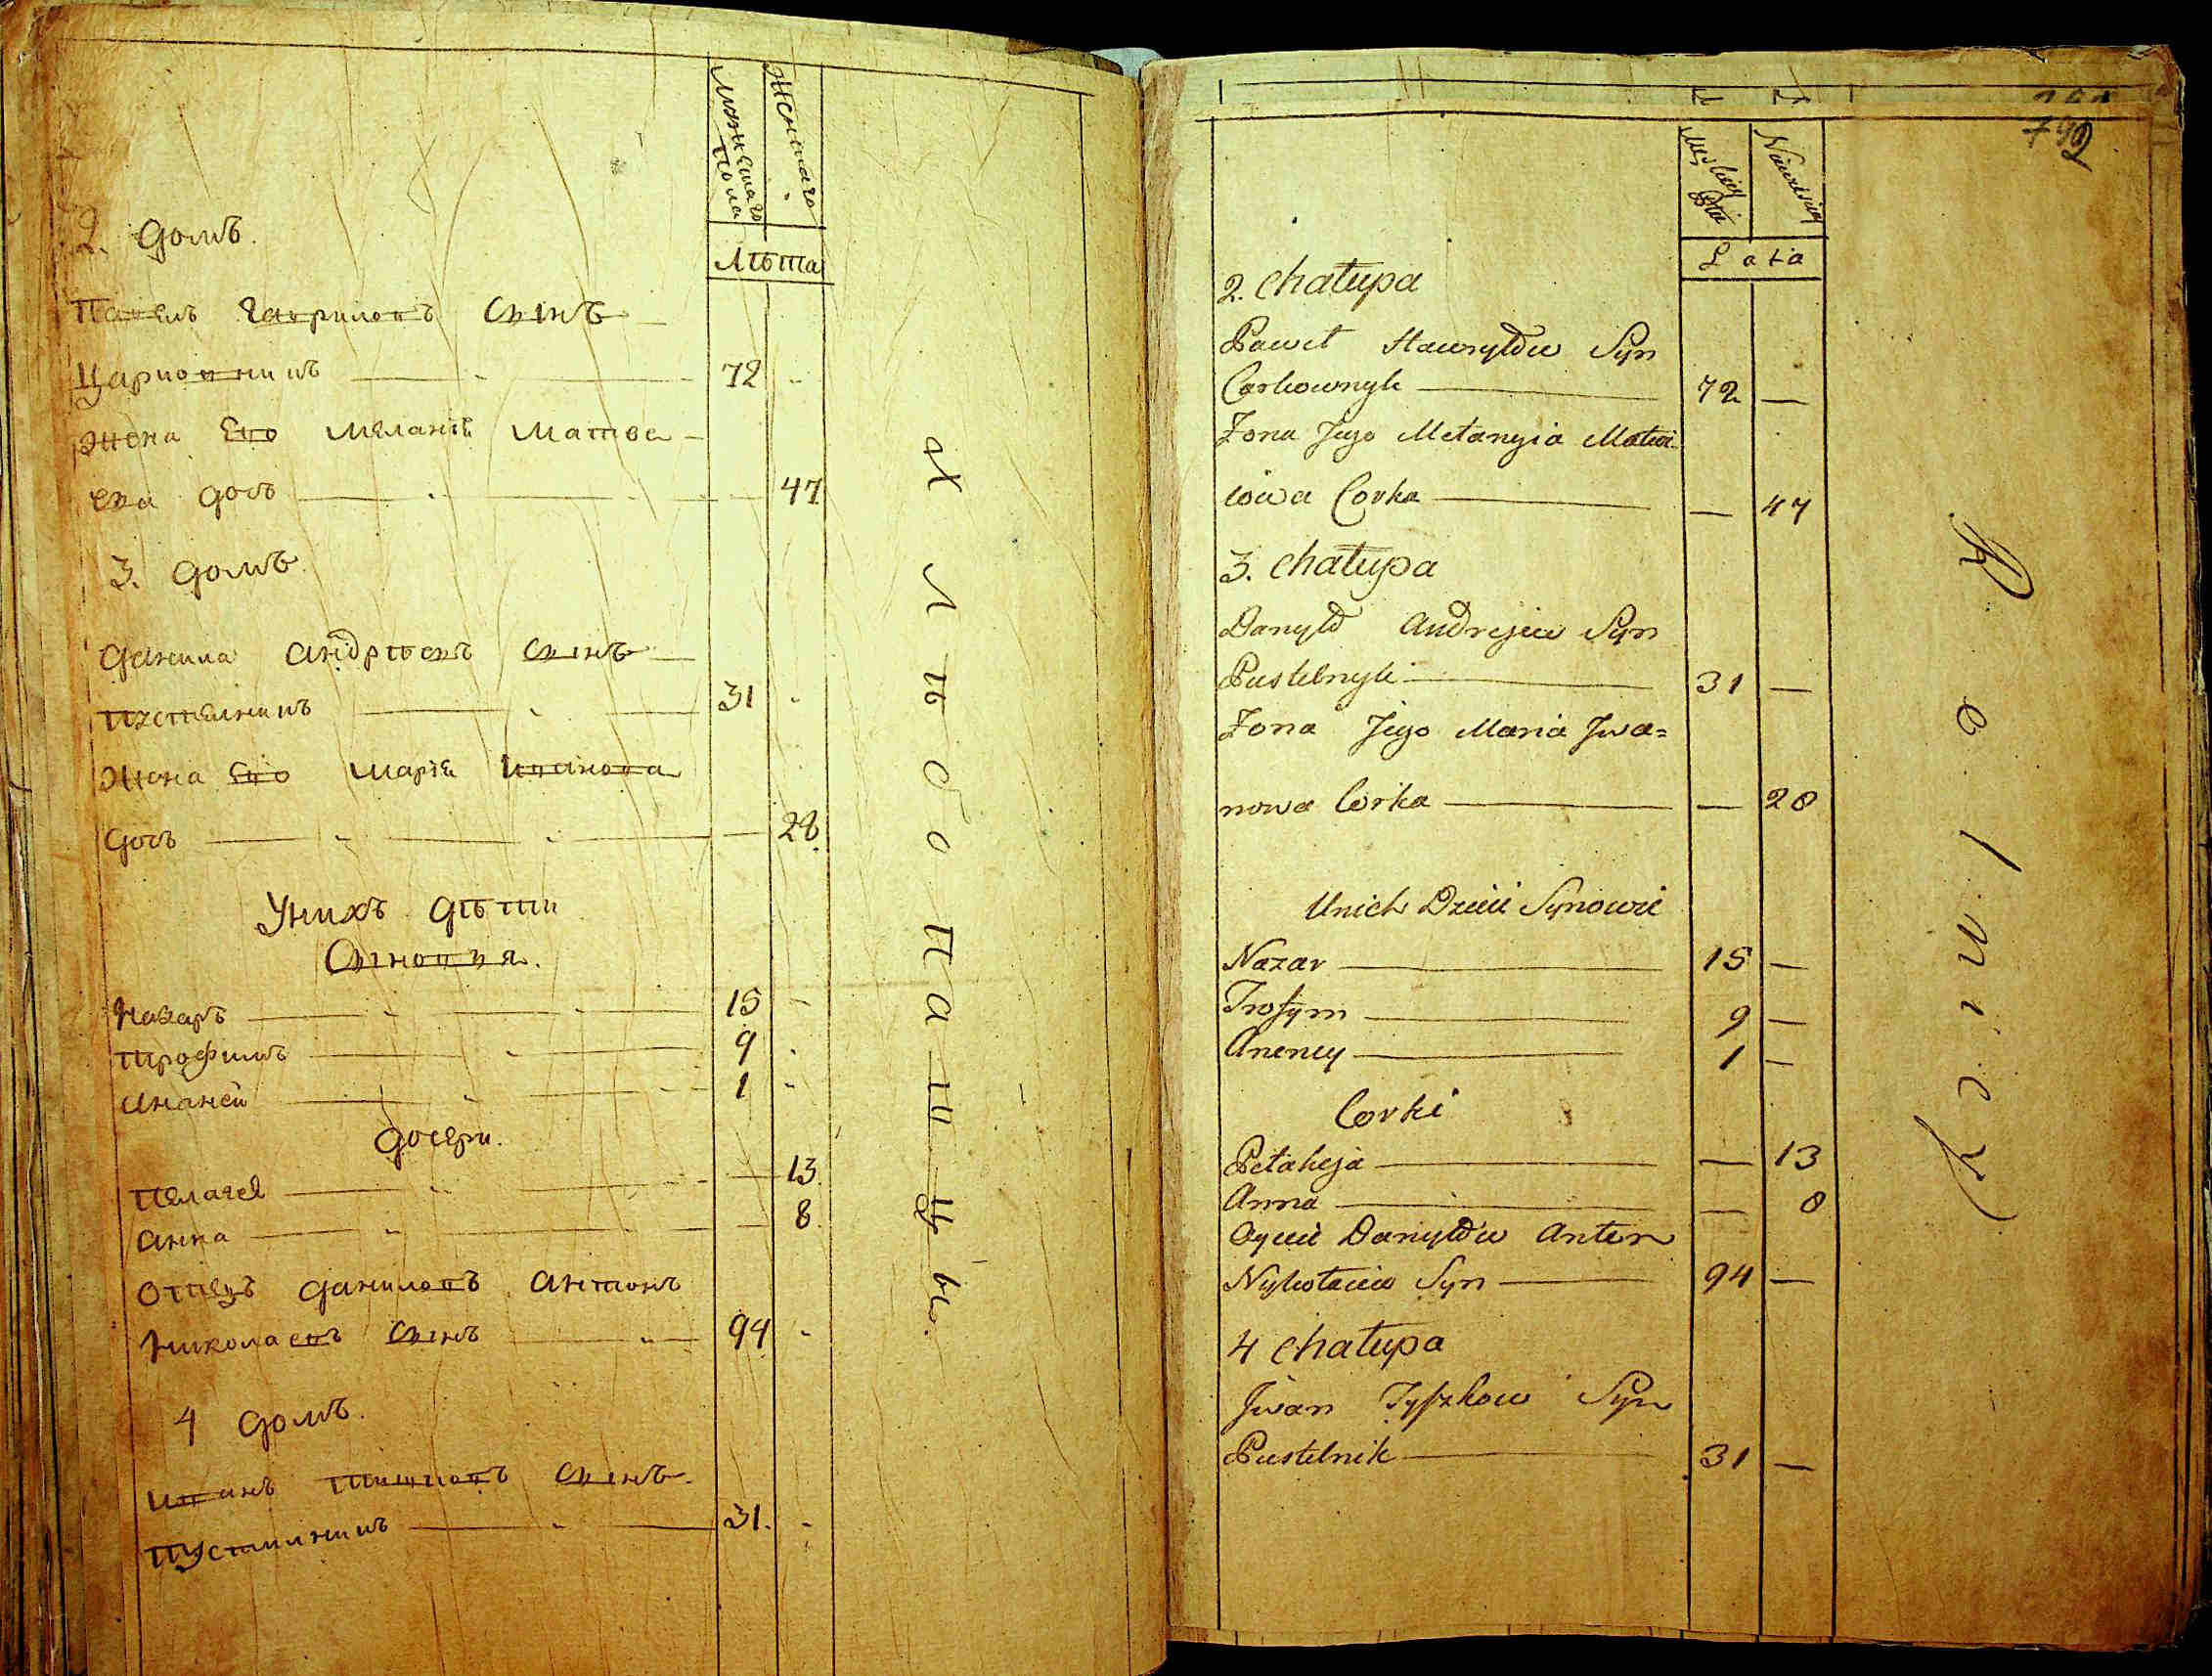 Мужескаго
пола
Женскаго
Лѣта
2. домъ.
Павелъ Гавриловъ сынъ
Царковникъ 72
Жена Его Меланіѣ Матве-
ева дочь 47
3. домъ
Данила Андрѣевъ сынъ
Пустелникъ 31
Жена Его Маріѣ Иванова
дочь 28.
Унихъ дѣти
Сыновья.
Назаръ 15
Трофимъ 9
Ананей 1
дочери.
Пелагеѣ 13.
Анна 8.
Отецъ Даниловъ Антонъ
Николаевъ сынъ 94
4 домъ.
Иванъ Тишковъ сынъ
Пустилникъ 31.
Хлѣбопашцы.
792
Męskiej
Płci
Niewieściej
Lata
2. Chałupa
Paweł Hawryłów Syn
Carkownyk 72 —
Żona Jego Mełanyia Matwi-
iowa Corka — 47
3. Chałupa
Danyło Andrejew Syn
Pustelnyk 31 —
Żona Jego Maria Jwa=
nowa Corka — 28
Unich Dzieci Synowie
Nazar 15 —
Trofym 9 —
Aneney 1 —
Corki
Pełaheja — 13
Anna — 8
Oyciec Danyłów Anton
Nykołaiew Syn 94 —
4 Chałupa
Jwan Tyszkow Syn
Pustelnik 31 —
Rolnicy